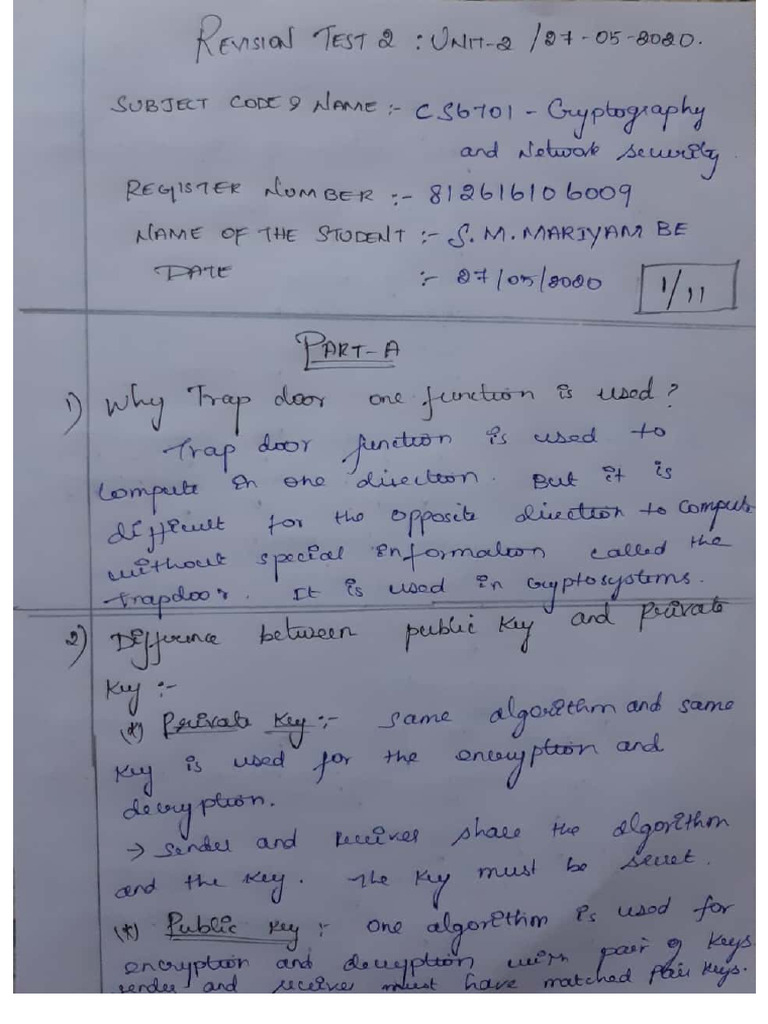 REVISION TEST 2 : UNIT-2 / 27-05-2020.
SUBJECT CODE & NAME :- CS6701 - Cryptography
and Network security.
REGISTER NUMBER :- 812616106009
NAME OF THE STUDENT :- S.M.MARIYAM BE
DATE :- 27/05/2020
1/11
PART-A
1) Why Trap door one function is used?
Trap door function is used to
compute in one direction. But it is
difficult for the opposite direction to compute
without special information called the
trapdoor. It is used in cryptosystems.
2) Difference between public key and private
key :-
(*) Private key :- same algorithm and same
key is used for the encryption and
decryption.
→ sender and receiver share the algorithm
and the key. The key must be secret.
(*) Public key :- one algorithm is used for
encryption and decryption with pair of keys
sender and receive must have matched pair keys.